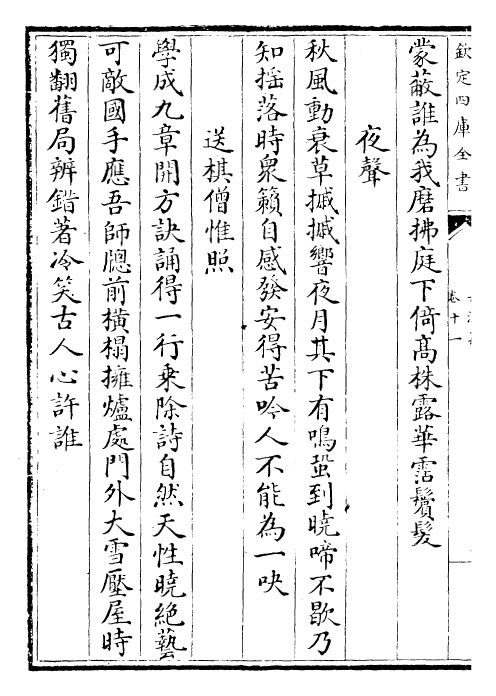 欽定四庫全書
卷十一
蒙蔽誰為我磨拂庭下倚髙株露華霑鬢髮
夜聲
秋風動衰草摵摵響夜月其下有鳴蛩到曉啼不歇乃
知揺落時衆籟自感發安得苦吟人不能為一吷
送棋僧惟照
學成九章開方訣誦得一行乗除詩自然天性曉絶藝
可敵國手應吾師牎前横榻擁爐處門外大雪壓屋時
獨翻舊局辨錯著冷笑古人心許誰